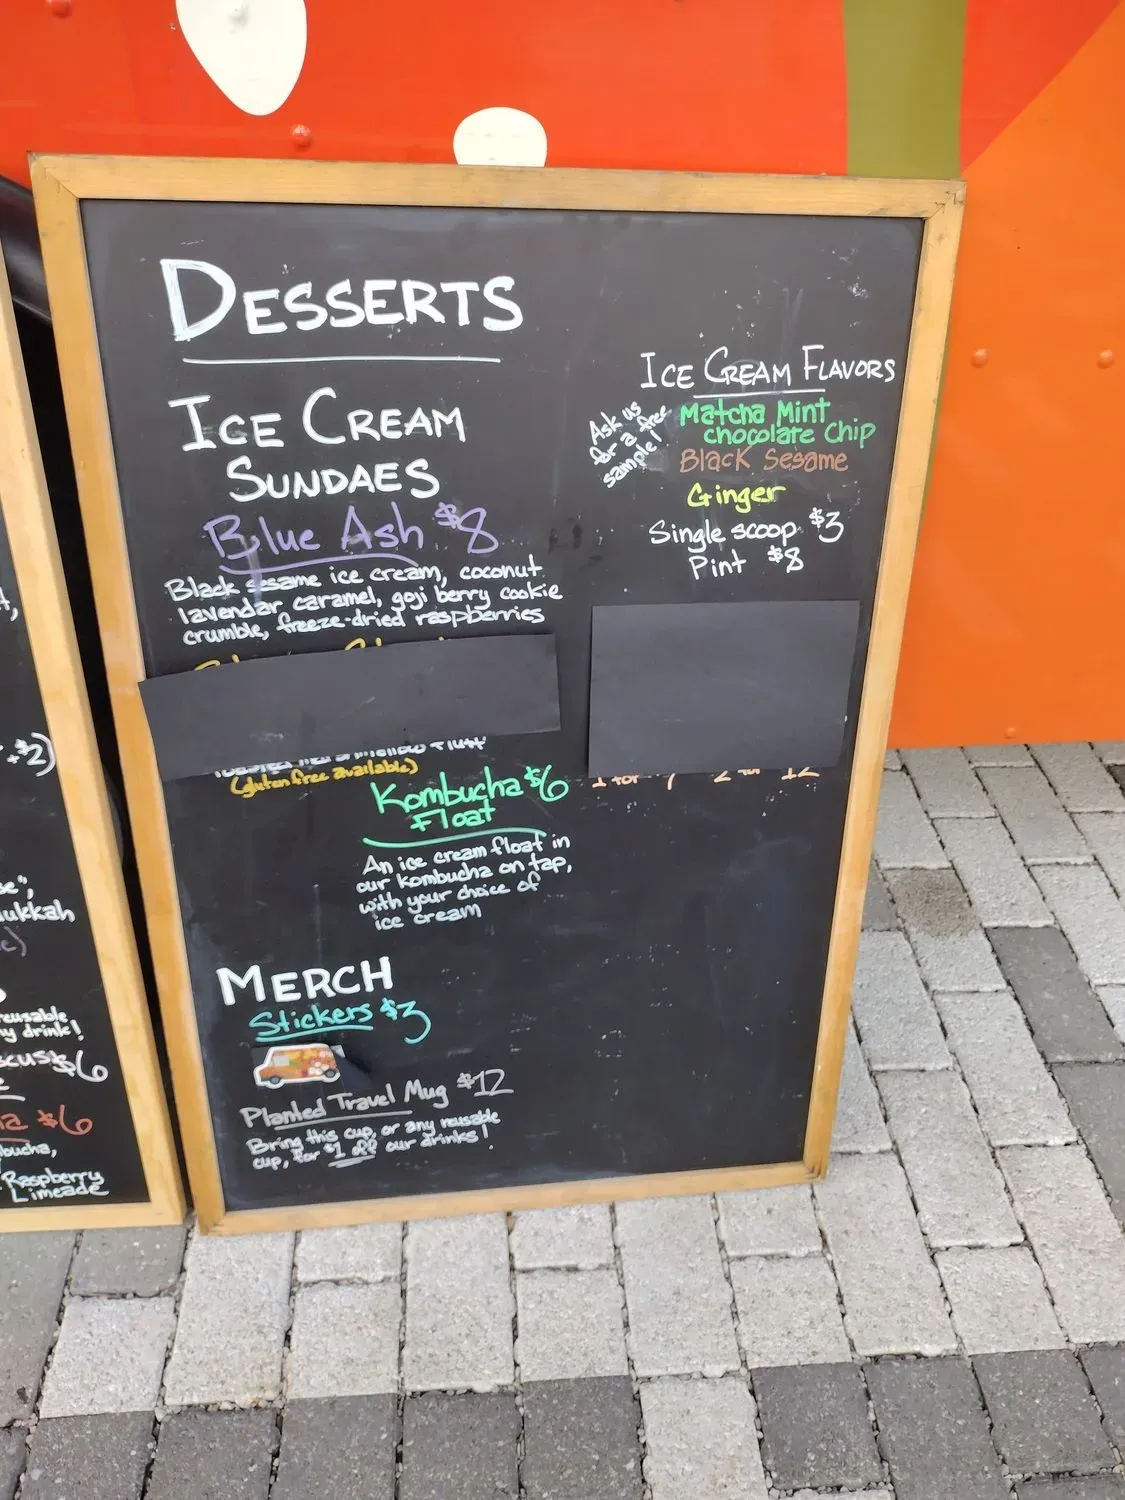 DESSERTS
ICE CREAM
SUNDAES
Blue Ash $8
Black sesame ice cream, coconut
lavendar caramel, goji berry cookie
crumble, freeze-dried raspberries
(gluten free available)
Kombucha $6
Float
An ice cream float in
our kombucha on tap,
with your choice of
ice cream
MERCH
Stickers $3
Planted Travel Mug $12
Bring this cup, or any reusable
cup, for $1 off our drinks!
ICE CREAM FLAVORS
Ask us
for a free
sample!
Matcha Mint
chocolate chip
Black Sesame
Ginger
Single scoop $3
Pint $8
1 for 7 2 for 12
+$2)
ukkah
reusable
drink!
$6
$6
Raspberry
Limeade